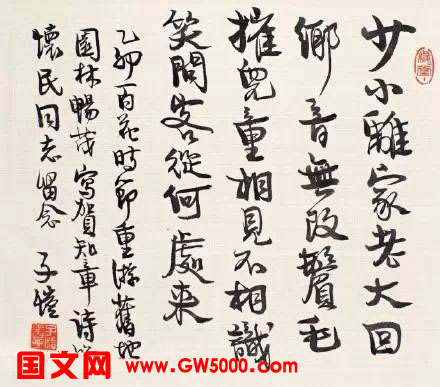 少小離家老大回
鄉音無改鬢毛
摧兒童相見不相識
笑問客從何處来
乙卯百花時節重游舊地
園林暢茂寫賀知章詩以
懷民同志留念 子愷
国文网 www.GW5000.com